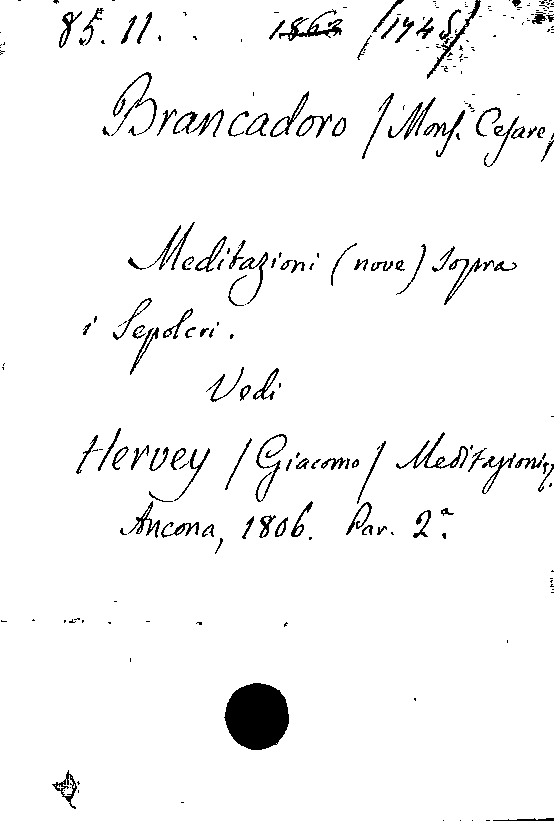 85.11. 1863 (1745)
Brancadoro / Monſ. Ceſare,
Meditazioni (nove) sopra
i Sepolcri.
Vedi
Hervey / Giacomo / Meditazioni,
Ancona, 1806. Par. 2ª.